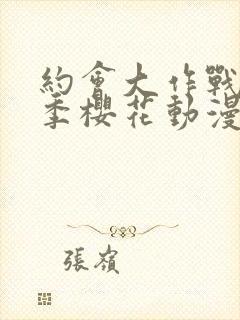 約會大作戰
季櫻花動漫
張嶺